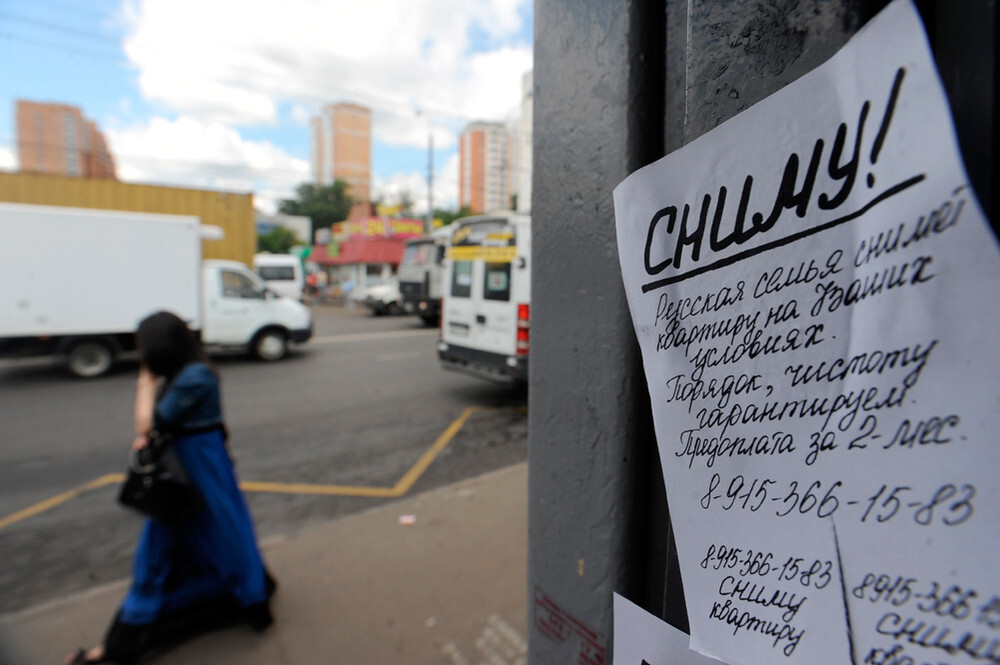 СНИМУ!
Русская семья снимет
квартиру на Ваших
условиях.
Порядок, чистоту
гарантируем.
Предоплата за 2-мес.
8-915-366-15-83
8-915-366-15-83
сниму
квартиру
8915-366-15
сниму